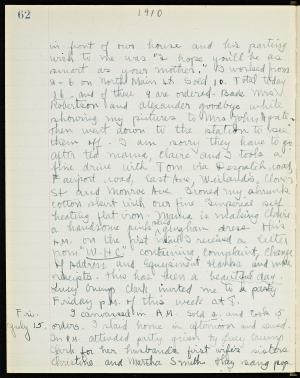 62
1910
in front of our house and his parting
wish to me was "I hope you'll be as
smart as your mother." I worked from
2-6 on North Main St. Sold 10. Total today
and of these 9 are ordered. Bade Mrs.
Robertson and Alexander goodbye while
showing my pictures to Mrs. John
then went down to the station to see
them off. I am sorry they have to go
after tea mama, Claire and I took a
fine drive with Tom via Penfield road,
East Ave,
St and Monroe Ave. Ironed my
cotton shirt with our fine "Imperial self
heating flat iron. Mama is making Claire
a handsome pink gingham dress. This
A.M. on the first mail I received a letter
from "W-H-C" containing complaint, change
of address and requisition blanks and
receipts. This has been a beautiful day.
Lucy Crump Clark invited me to a party
Friday P.M. of this week at 8.
Fri.
July 15.
I canvassed in A.M. Sold 2 and took 5
orders. I staid home in afternoon and sewed.
In P.M. attended party given by Lucy Crump
Clark for her husband's first wife's sisters
Christine and Martha Smith.